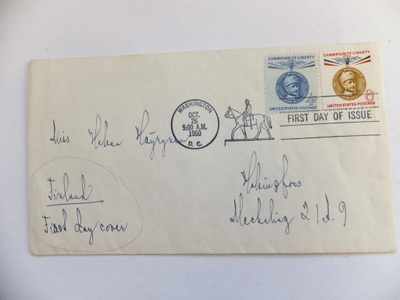 CHAMPION OF LIBERTY
4¢
UNITED STATES POSTAGE
CHAMPION OF LIBERTY
8¢
UNITED STATES POSTAGE
WASHINGTON
OCT.
26
9:00 A.M.
1960
D. C.
FIRST DAY OF ISSUE
Miss Helen
Finland
First Day cover
Helsingfors
21 d. 9